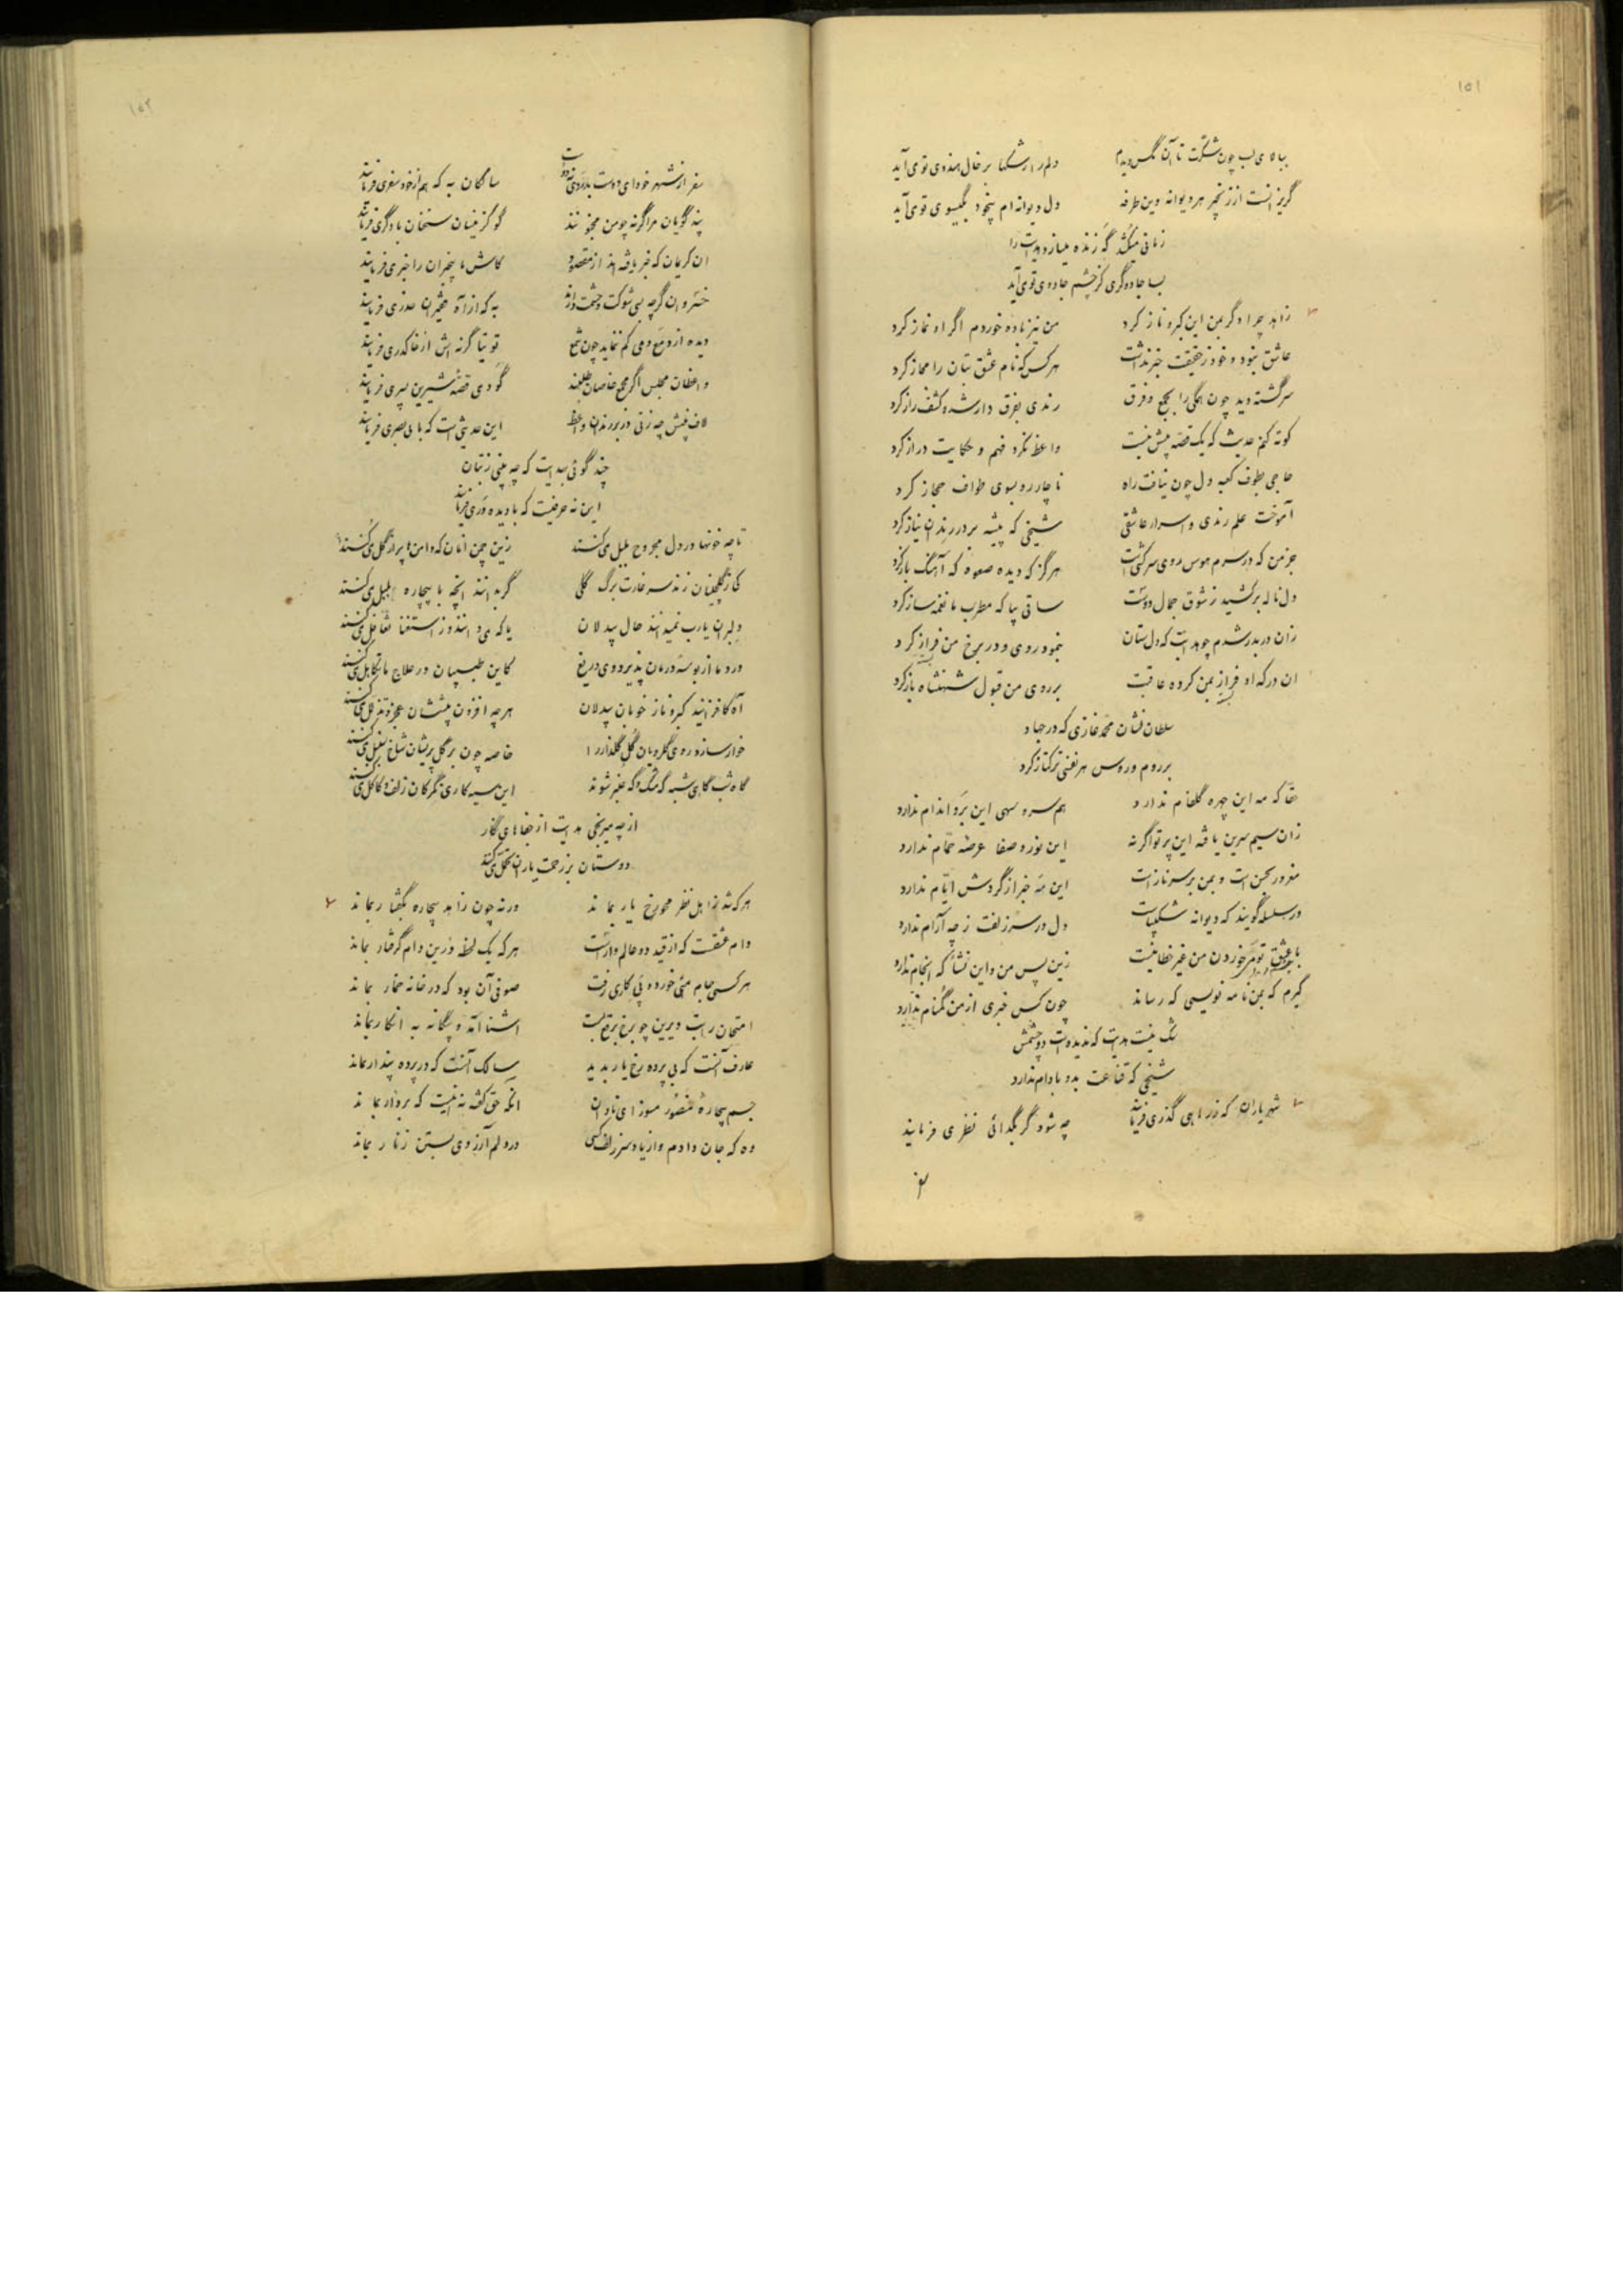 ۱۵۱
ببالای لب چون شکرت تا آن مگس دیدم دلم را رشکها بر خال هندوی تو می‌آید
گریزانست از زنجیر هر دیوانه وین طرفه دل دیوانه‌ام بیخود بگیسوی تو می‌آید
زمانی میکشد گه زنده میسازد هدایت را
بسا جادوگری کز چشم جادوی تو می‌آید
زاهد چرا دگر بمن این کبر و ناز کرد من نیز باده خوردم اگر او نماز کرد
عاشق نبود و خود ز حقیقت خبر نداشت هر کس که نام عشق بتان را مجاز کرد
سرگشته دید چون همگی را بجمع و فرق رندی بفرق دار شد و کشف راز کرد
کوته کنم حدیث که یک قصه بیش نیست واعظ نکرد فهم و حکایت دراز کرد
حاجی بطوف کعبه دل چون نیافت راه ناچار رو بسوی طواف حجاز کرد
آموخت علم رندی و اسرار عاشقی شیخی که پیشه بر در رندان نیاز کرد
جز من که در سرم هوس روی سرکشی است هرگز که دیده صعوه که آهنگ باز کرد
دل ناله برکشید ز شوق جمال دوست ساقی بیا که مطرب ما نغمه ساز کرد
زان دربدر شدم چو هدایت که دل‌ستان بنمود روی و در برخ من فراز کرد
ان در که او فراز بمن کرده عاقبت بر روی من قبول شهنشاه باز کرد
سلطان نشان محمد غازی که در جهاد
بر روم و روس هر نفسی ترکتاز کرد
حقا که مه این چهره گلفام ندارد هم سرو سهی این بر و اندام ندارد
زان سیم سرین یافته این پرتو اگر نه این نور و صفا عرصه حمام ندارد
مغرور بحسن است و بمن بر سر ناز است این مه خبر از گردش ایام ندارد
در سلسله گویند که دیوانه شکیباست دل در سر زلفت ز چه آرام ندارد
با عشق تو می خوردن من غیر خطا نیست زین پس من و این نشأ که انجام ندارد
گیرم که بمن نامه نویسی که رساند چون کس خبری از من گمنام ندارد
شک نیست هدایت که ندیده است دو چشمش
شیخی که قناعت بدو بادام ندارد
شهریاران که ز راهی گذری فرمایند چه شود گر بگدائی نظری فرمایند
۱۵۲
سفر از شهر خود ای دوست به رندی است سالکان به که هم از خود سفری فرمایند
پند گویان مرا گرنه چو من مجنونند گو گزینان سخنان با دگری فرمایند
ان کریمان که خبر یافته‌اند از مقصود کاش ما بیخبران را خبری فرمایند
خسروان گرچه بسی شوکت و حشمت دارند به که از آه فقیران حذری فرمایند
دیده از دمع دمی کم ننماید چون شمع توتیا گرنه‌اش از خاک دری فرمایند
واعظان مجلس اگر مجمع خاصان طلبند گو دمی قصه شیرین پسری فرمایند
لاف بینش چه زنی در بر رندان واعظ این حدیثی است که با بی‌بصری فرمایند
چند گوئی به هدایت که چه بینی ز بتان
این نه حرفیست که با دیده‌وری فرمایند
تا چه خونها در دل مجروح بلبل می‌کنند زین چمن آنان که دامن‌ها پر از گل می‌کنند
کار گلچینان زند سر غارت برگ گلی گر بدانند آنچه با بیچاره بلبل می‌کنند
دلبران یارب نمیدانند حال بیدلان یا که می‌دانند و ز استغنا تغافل می‌کنند
درد ما از بوسه درمان پذیرد وی دریغ کاین طبیبان در علاج ما تکاهل می‌کنند
آه کافزایند کبر و ناز خوبان بیدلان هرچه افزون پیششان عجز و تذلل می‌کنند
خوار سازد روی گلرویان گل گلذار را خاصه چون بر گل پریشان شاخ سنبل می‌کنند
گاه شب گاهی شبه گه مشک و گه عنبر شوند این سیه‌کاری نگر کان زلف و کاکل می‌کنند
از چه میرنجی هدایت از جفاهای نگار
دوستان بر زحمت یاران تحمل می‌کنند
هر که شد ز اهل نظر محو رخ یار بماند ورنه چون زاهد بیچاره بگفتار بماند
دام عشقت که از قید دو عالم وارست هر که یک لحظه درین دام گرفتار بماند
هر کسی جام مئی خورده پی کاری رفت صوفی آن بود که در خانه خمار بماند
امتحان راست درین چو برخ برقع بست آشنا آمد و بیگانه به انکار بماند
عارف آنست که بی‌پرده رخ یار بدید سالک آنست که در پرده پندار بماند
جسم بیچاره منصور مسوز ای نادان انکه حق گفته نه انیست که بر دار بماند
وه که جان دادم و از یاد سر زلف کسی در دلم آرزوی بستن زنار بماند